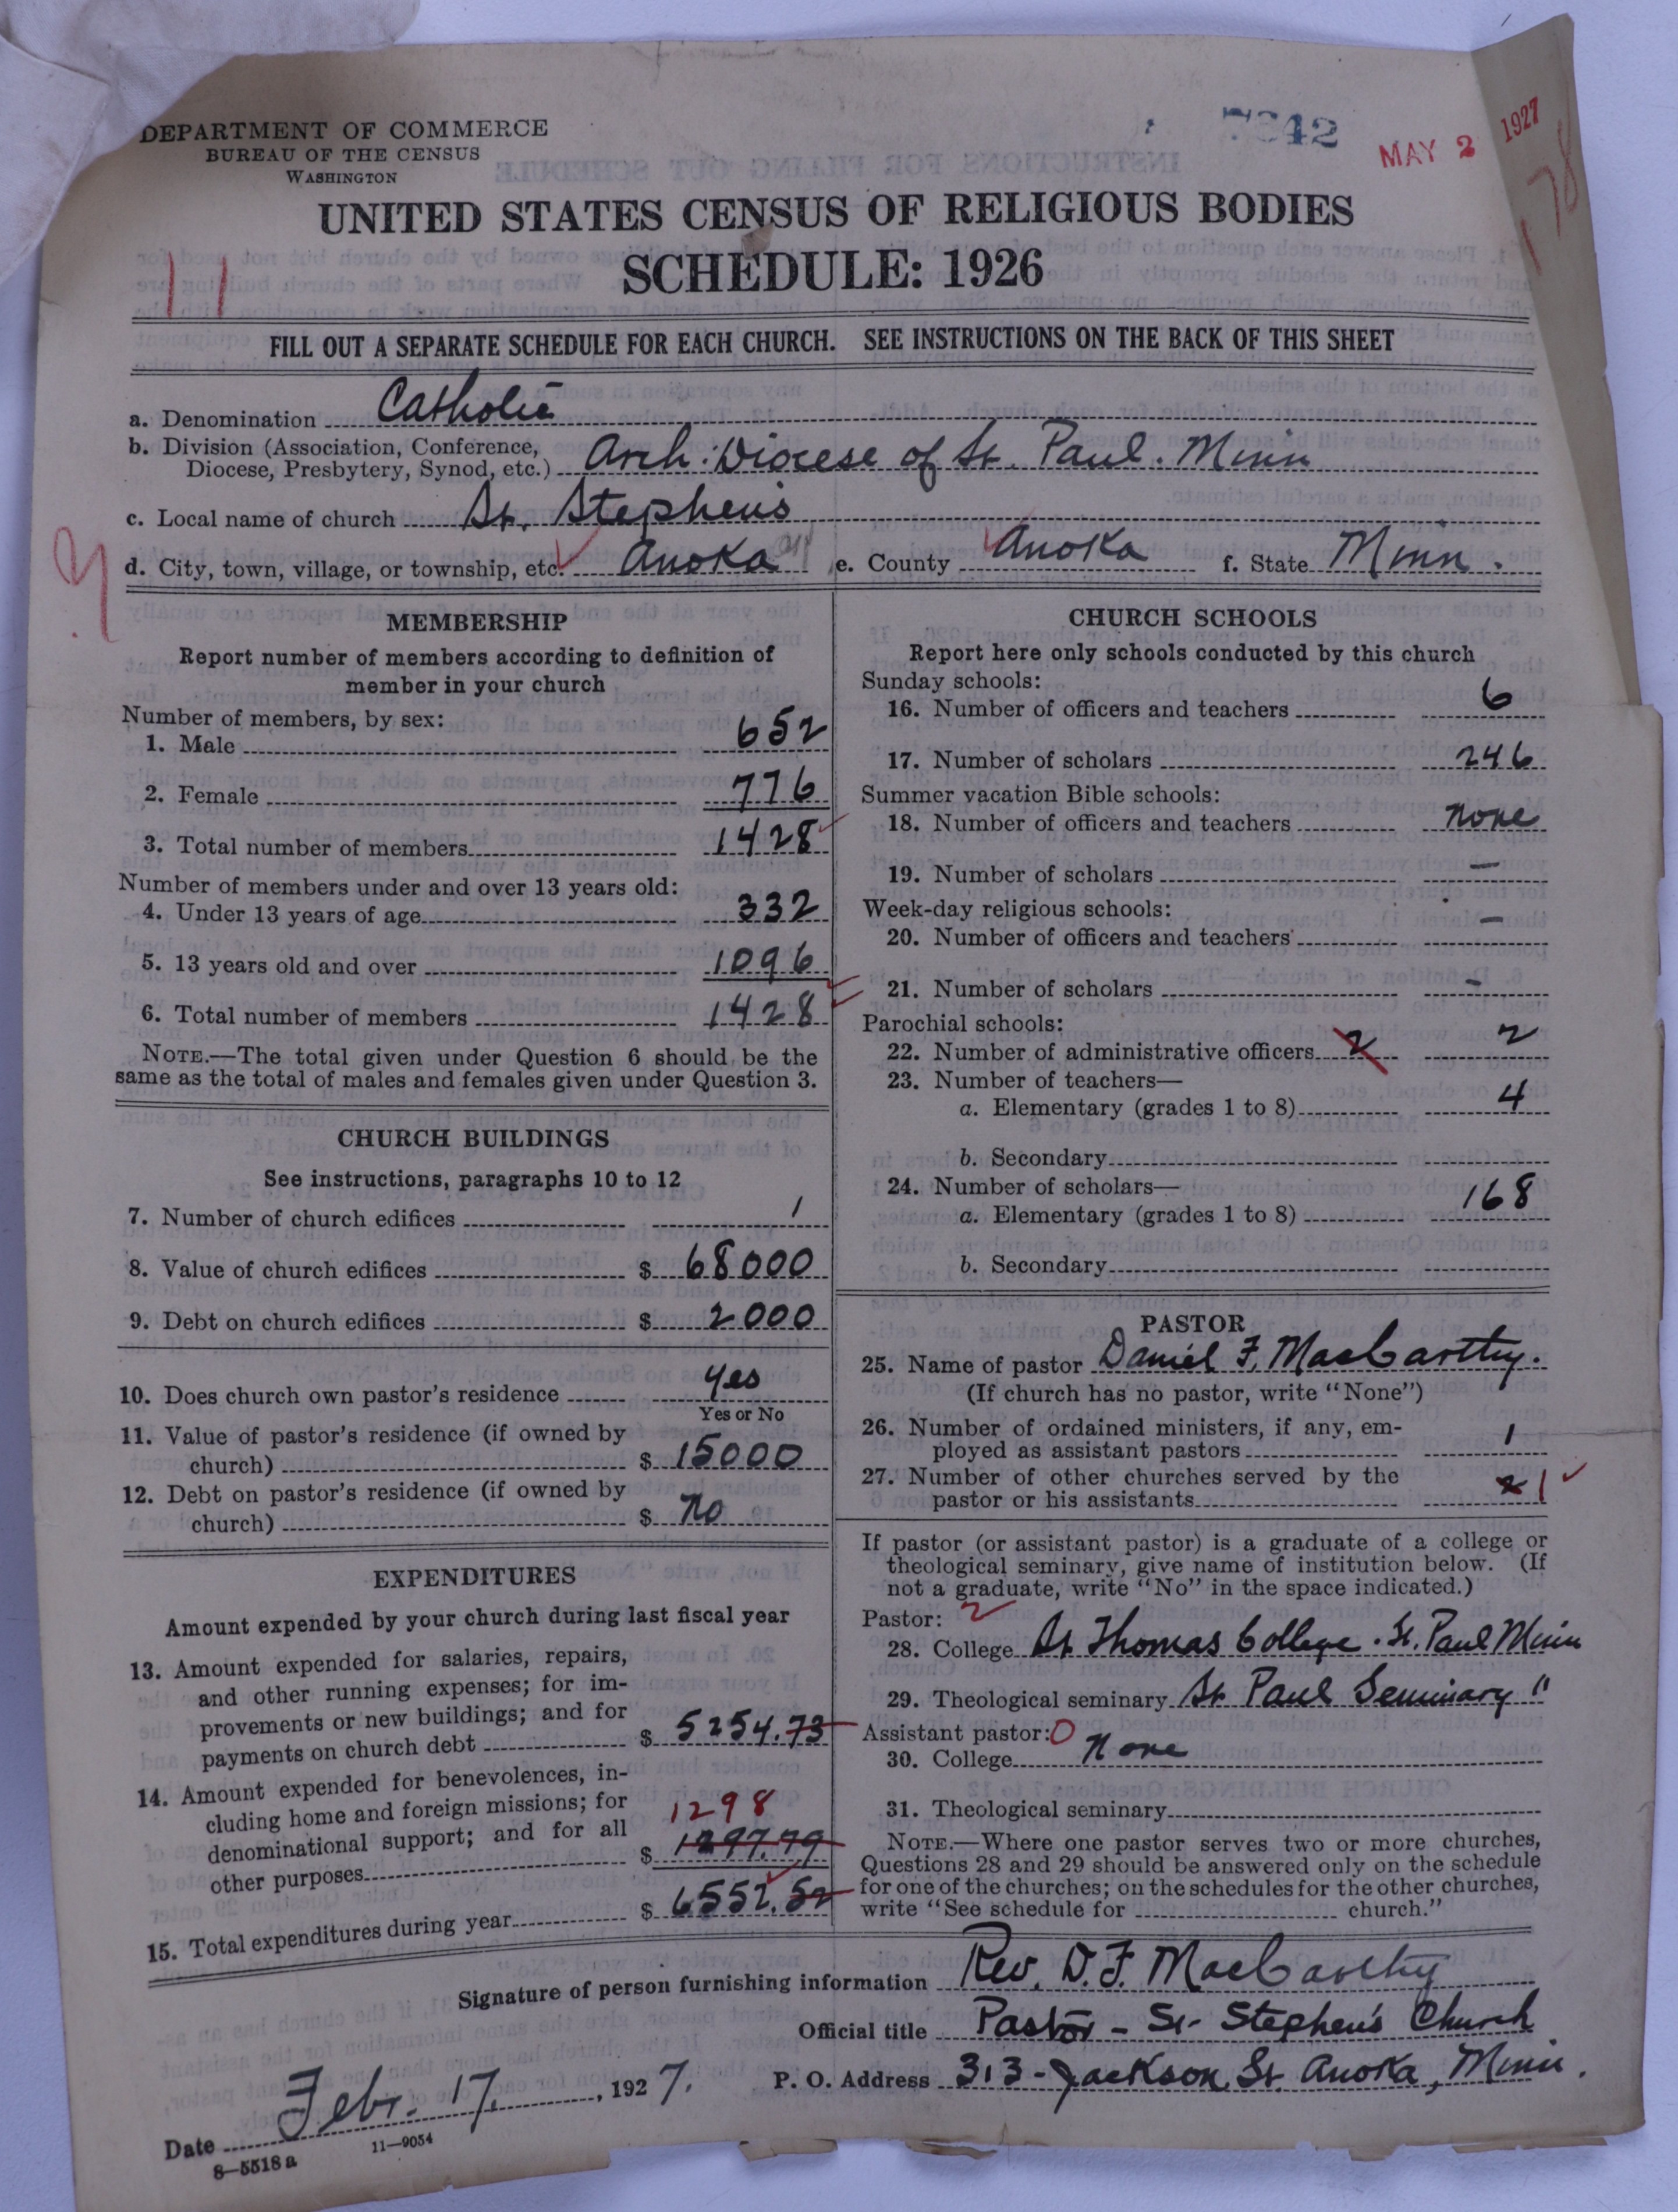 DEPARTMENT OF COMMERCE
BUREAU OF THE CENSUS
WASHINGTON
MAY 2 1927
UNITED STATES CENSUS OF RELIGIOUS BODIES
SCHEDULE: 1926
11
178
FILL OUT A SEPARATE SCHEDULE FOR EACH CHURCH. SEE INSTRUCTIONS ON THE BACK OF THIS SHEET
a. Denomination Catholic
b. Division (Association, Conference,
Diocese, Presbytery, Synod, etc.) Arch: Diocese of St. Paul. Minn
c. Local name of church St. Stephen's
d. City, town, village, or township, etc. Anoka e. County Anoka f. State Minn.
MEMBERSHIP
Report number of members according to definition of
member in your church
Number of members, by sex:
1. Male 652
2. Female 776
3. Total number of members 1428
Number of members under and over 13 years old:
4. Under 13 years of age 332
5. 13 years old and over 1096
6. Total number of members 1428
NOTE.—The total given under Question 6 should be the
same as the total of males and females given under Question 3.
CHURCH BUILDINGS
See instructions, paragraphs 10 to 12
7. Number of church edifices 1
8. Value of church edifices $ 68000
9. Debt on church edifices $ 2000
10. Does church own pastor's residence yes
Yes or No
11. Value of pastor's residence (if owned by
church) $ 15000
12. Debt on pastor's residence (if owned by
church) $ no
EXPENDITURES
Amount expended by your church during last fiscal year
13. Amount expended for salaries, repairs,
and other running expenses; for im-
provements or new buildings; and for
payments on church debt $ 5254.73
14. Amount expended for benevolences, in-
cluding home and foreign missions; for
denominational support; and for all
other purposes $ 1297.79
1298
15. Total expenditures during year $ 6552.52
CHURCH SCHOOLS
Report here only schools conducted by this church
Sunday schools:
16. Number of officers and teachers 6
17. Number of scholars 246
Summer vacation Bible schools:
18. Number of officers and teachers none
19. Number of scholars —
Week-day religious schools:
20. Number of officers and teachers —
21. Number of scholars -
Parochial schools:
22. Number of administrative officers 2 2
23. Number of teachers—
a. Elementary (grades 1 to 8) 4
b. Secondary
24. Number of scholars—
a. Elementary (grades 1 to 8) 168
b. Secondary
PASTOR
25. Name of pastor Daniel F. MacCarthy.
(If church has no pastor, write "None")
26. Number of ordained ministers, if any, em-
ployed as assistant pastors 1
27. Number of other churches served by the
pastor or his assistants 1
If pastor (or assistant pastor) is a graduate of a college or
theological seminary, give name of institution below. (If
not a graduate, write "No" in the space indicated.)
Pastor: 2
28. College St Thomas College. St. Paul Minn
29. Theological seminary St Paul Seminary "
Assistant pastor: 0
30. College None
31. Theological seminary
NOTE.—Where one pastor serves two or more churches,
Questions 28 and 29 should be answered only on the schedule
for one of the churches; on the schedules for the other churches,
write "See schedule for church."
Signature of person furnishing information Rev. D. F. MacCarthy
Official title Pastor - St. Stephen's Church
P. O. Address 313 - Jackson St. Anoka, Minn.
Date Febr. 17, 1927.
8—5518 a 11—9054